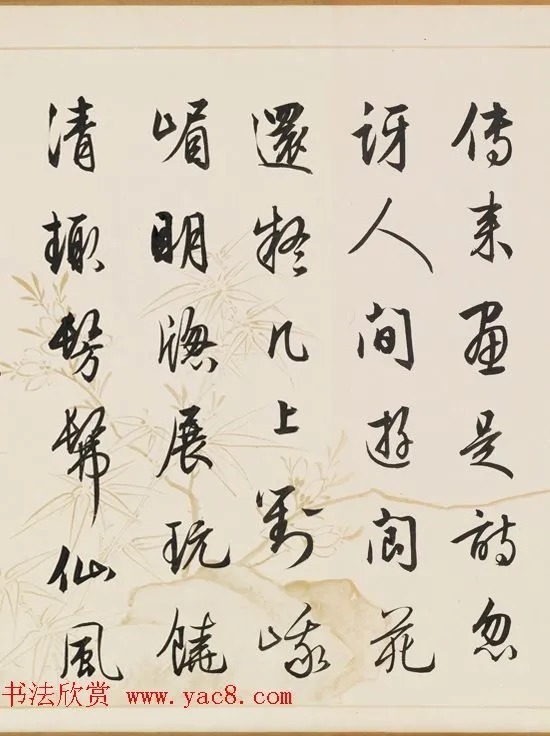 傳来畫是詩忽
訝人間遊閬苑
還疑几上對峨
嵋明窓展玩饒
清趣髣髴仙風
书法欣赏 www.yac8.com